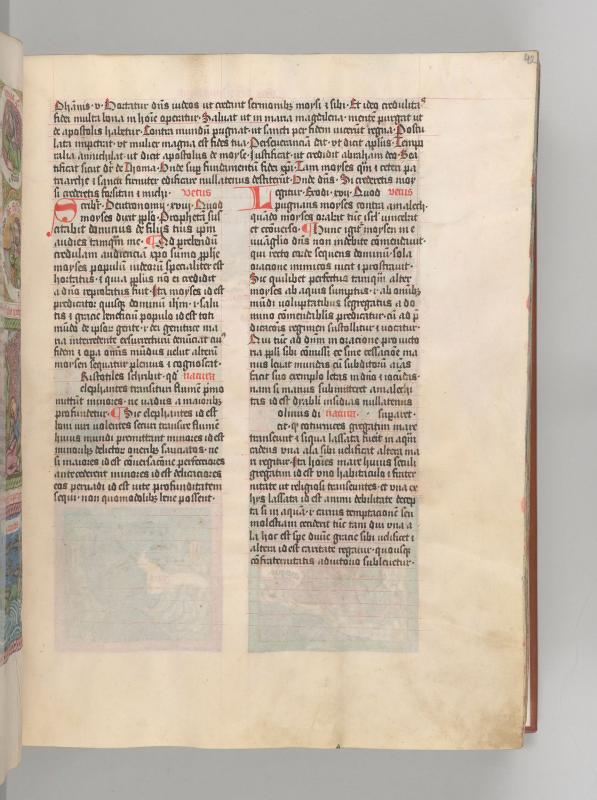 42
Ioh̄annis · v · Hortatur dn̄s iudeos ut credant sermonibꝫ moysi ⁊ sibi · Et ideo credulitas
fidei multa bona in hoīe operatur · Saluat ut in maria magdelena · mentē purgat ut
de apostolis habetur · Contra mundū pugnat · ut sancti per fidem vicerūt regna · Postu
lata impetrat · ut mulier magna est fides tua · Perseuerantiā dat · ut dicit aplūs · Temp
ralia annichilat · ut dicit apostolus de moyse · Justificat · ut credidit abraham deo · Sca
tificat sicut dr̄ de · Unde sup fundamentū fidei xpi · Tam moyses qm̄ ⁊ ceteri pa
triarche ⁊ sancti firmiter edificare nullatenus destiterūt · Unde dn̄s · Si crederetis moy
si crederetis forsitan ⁊ michi · vetus
Scribit̄ · Deutronomij · xviij · Quod
moyses dixit pplō · Prophetā sus
citabit dominus de filijs tuis ip̄m
audies tamqm̄ me · ¶ Ad prebendū
credulam audienciā xpo sumo pphe
moyses populū iudeorū specialiter est
hortatus · ⁊ quia pplūs nō ei credidit
a dn̄o reprobatus fuit · Ita moyses id est
predicator quisqꝫ dominū ihm̄ · ⁊ salu
tis ⁊ gracie
mūdo de ipsoꝝ gente · ⁊ dei genitrice ma
ria intercedente
fidem ⁊ opa om̄is mūdus velut alterū
moysen sequatur plenius ⁊ cognoscat ·
Aristotiles scribit · qd natura
elephantes transituri flumē pͥmo
mittunt minores · ne vadus a maioribꝫ
profundetur · ¶ Sic elephantes id est
boni viri volentes secure transire flumē
huius mundi premittant minores id est
minoribus delictoꝝ oneribꝫ sauciatos · ne
si maiores id est conuersacōne perfectiores
antecederent minores id est debiliores
eos periculi id est vite profunditatem
sequi · non quomodolibꝫ leue possent ·
Legitur · Exodi · xvij · Quod vetus
pugnans moyses contra amalech ·
quādo moyses orabat tūc isrl̄ vincebat
et ecōuerso · ¶ Hunc igit̄ moysen in e
wangelio dn̄s non indebite commendauit ·
qui recto corde sequens dominū sola
oracione inimicos vicit ⁊ prostrauit ·
Sic quilibet perfectus tamqm̄ alter
moyses ab aquis sumptus · ⁊ ab omībꝫ
mūdi voluptatibus segregatus a do
mino cōmendabilis predicatur · cū ad p̄
dicatoris regimen sustollitur ⁊ vocatur ·
Qui tūc ad dn̄m in oracione pro victo
ria ppli sibi cōmissi et sine cessacōne ma
nus leuat mundas cū subditorū aīas
facit suo exemplo letas in dn̄o ⁊ iocūdas ·
nam si manus submitteret amalechi
tas id est dyaboli insidias nullatenus
Solinus di natura · supare
cit · qͥ coturnices gregatim mare
transeunt ⁊ si qua lassata fuerit in aqm̄
cadens vna ala sibi velificat altera ma
re regitur · Ita hoīes mare huius seculi
gregatim id est vno habitaculo ⁊ frater
nitate ut religiosi transeuntes · et vna ex
hijs lassata id est animi debilitate decep
ta si in aquā · ⁊ carnis temptacionē seu
molestiam ceciderit tūc tam diu vna a
la hoc est spe diuīe gracie sibi velificet ⁊
altera id est caritate regatur · quousqꝫ
cōfraternitatis adiutorio subleuetur ·